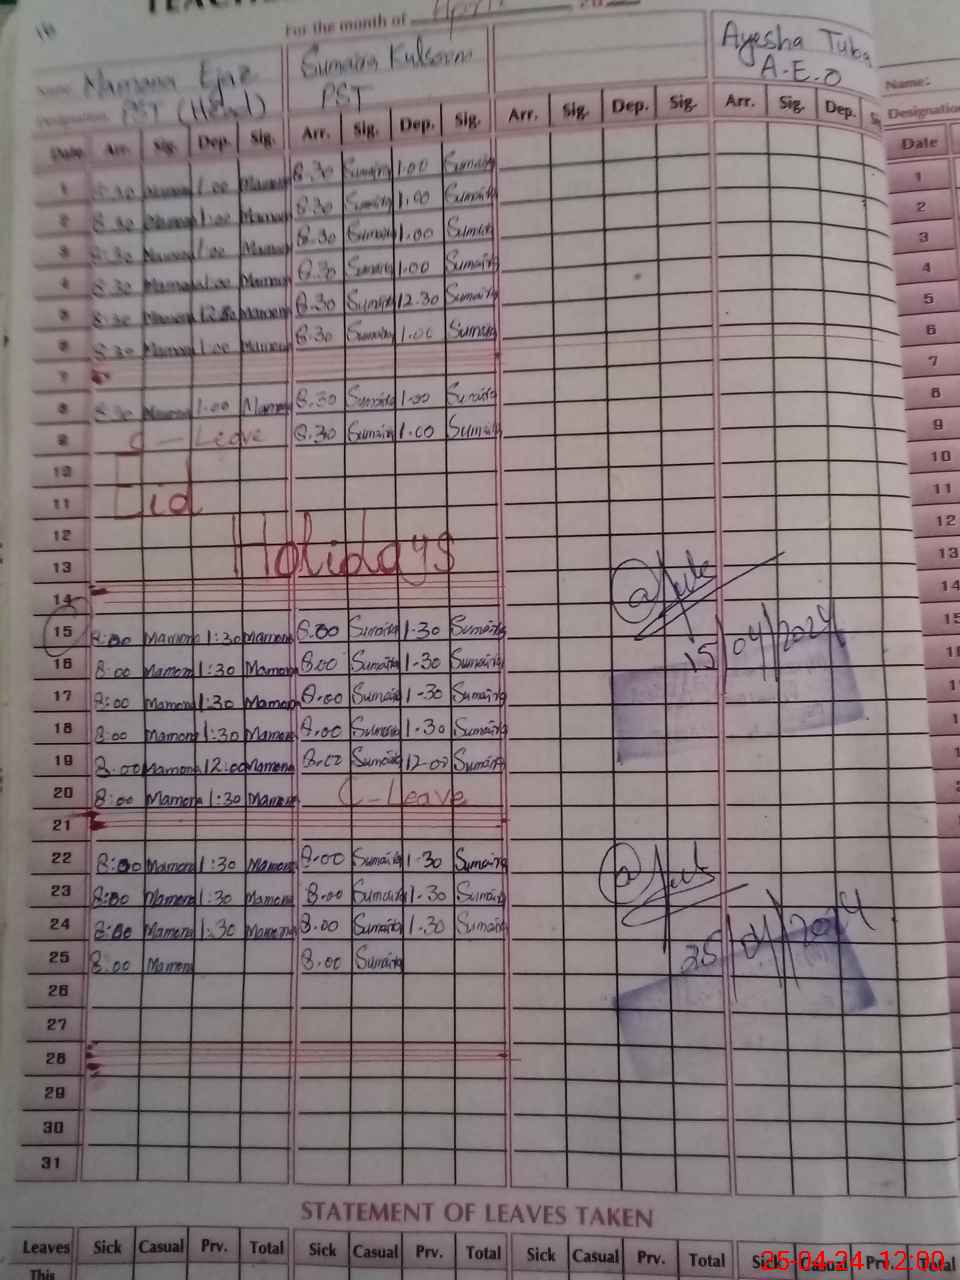 For the month of April 20
Mamona Ejaz Sumaira Kulsoom Ayesha Tuba
PST (Head) PST A.E.O
Name:
Designation
Date Arr. Sig. Dep. Sig. Arr. Sig. Dep. Sig. Arr. Sig. Dep. Sig. Arr. Sig. Dep. Date
1 8:30 Mamona 1:00 Mamona 8.30 Sumaira 1.00 Sumaira 1
2 8:30 Mamona 1:00 Mamona 8.30 Sumaira 1.00 Sumaira 2
3 8:30 Mamona 1:00 Mamona 8.30 Sumaira 1.00 Sumaira 3
4 8:30 Mamona 1:00 Mamona 8.30 Sumaira 1.00 Sumaira 4
5 8:30 Mamona 12:30 Mamona 8.30 Sumaira 12.30 Sumaira 5
6 8:30 Mamona 1:00 Mamona 8.30 Sumaira 1.00 Sumaira 6
7 7
8 8:30 Mamona 1:00 Mamona 8.30 Sumaira 1.00 Sumaira 8
9 C-Leave 8.30 Sumaira 1.00 Sumaira 9
10 10
11 Eid 11
12 Holidays 12
13 13
14 14
15 8:00 Mamona 1:30 Mamona 8.00 Sumaira 1.30 Sumaira 15/04/2024 15
16 8:00 Mamona 1:30 Mamona 8.00 Sumaira 1.30 Sumaira
17 8:00 Mamona 1:30 Mamona 8.00 Sumaira 1.30 Sumaira
18 8:00 Mamona 1:30 Mamona 8.00 Sumaira 1.30 Sumaira
19 8.00 Mamona 12:00 Mamona 8.00 Sumaira 12.00 Sumaira
20 8:00 Mamona 1:30 Mamona C-Leave
21
22 8:00 Mamona 1:30 Mamona 8.00 Sumaira 1.30 Sumaira
23 8:00 Mamona 1:30 Mamona 8.00 Sumaira 1.30 Sumaira
24 8:00 Mamona 1:30 Mamona 8.00 Sumaira 1.30 Sumaira
25 8.00 Mamona 8.00 Sumaira 25/04/2024
26
27
28
29
30
31
STATEMENT OF LEAVES TAKEN
Leaves Sick Casual Prv. Total Sick Casual Prv. Total Sick Casual Prv. Total Sick Casual Prv. Total
This
25-04-24 12:00